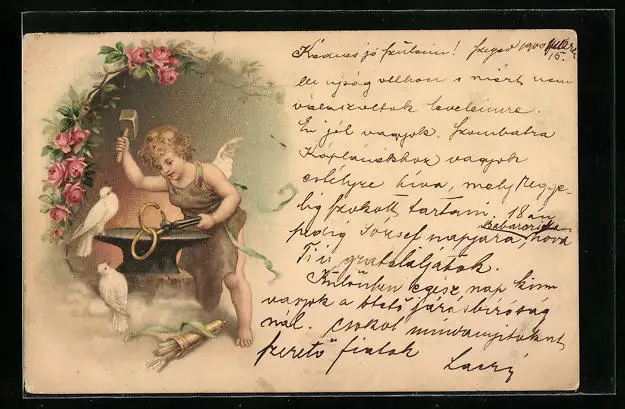 Kedves jó szüleim! Szeged 1900
15.
Mi ujság otthon s miért nem
válaszoltok leveleimre.
Én jól vagyok. Szombatra
Káplánékhoz vagyok
estélyre híva, mely reggelig szokott tartani. 18 án
pedig József napjára hová
Ti is gratuláljatok.
Különben egész nap kinn
vagyok a járásbíróság
nál. Csókol mindannyitokat
szerető fiatok
Laczi